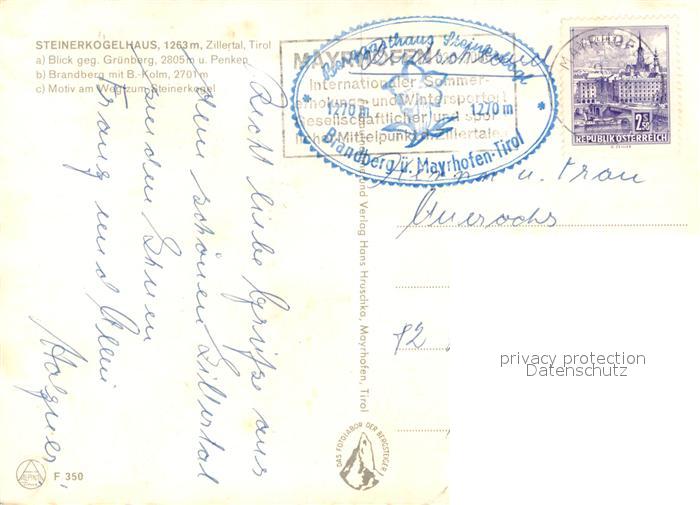 STEINERKOGELHAUS, 1263 m, Zillertal, Tirol
a) Blick geg. Grünberg, 2805 m u. Penken
b) Brandberg mit B.-Kolm, 2701 m
c) Motiv am Weg zum Steinerkogel
Recht liebe Grüße aus
dem schönen Zillertal
senden Ihnen
Franz und
F 350
und Verlag Hans Hruschka, Mayrhofen, Tirol
DAS FOTOLABOR DER BERGSTEIGER
MAYRHOFEN
Internationaler Sommer-
erholungs- und Wintersportort
Gesellschaftlicher und spor
Mittelpunkt Zillertales
Berggasthaus Steinerkogl
* 1270 m 1270 m *
Brandberg ü. Mayrhofen-Tirol
Deutschland
MAYRHOF
2.50
REPUBLIK ÖSTERREICH
u. Frau
82
privacy protection
Datenschutz